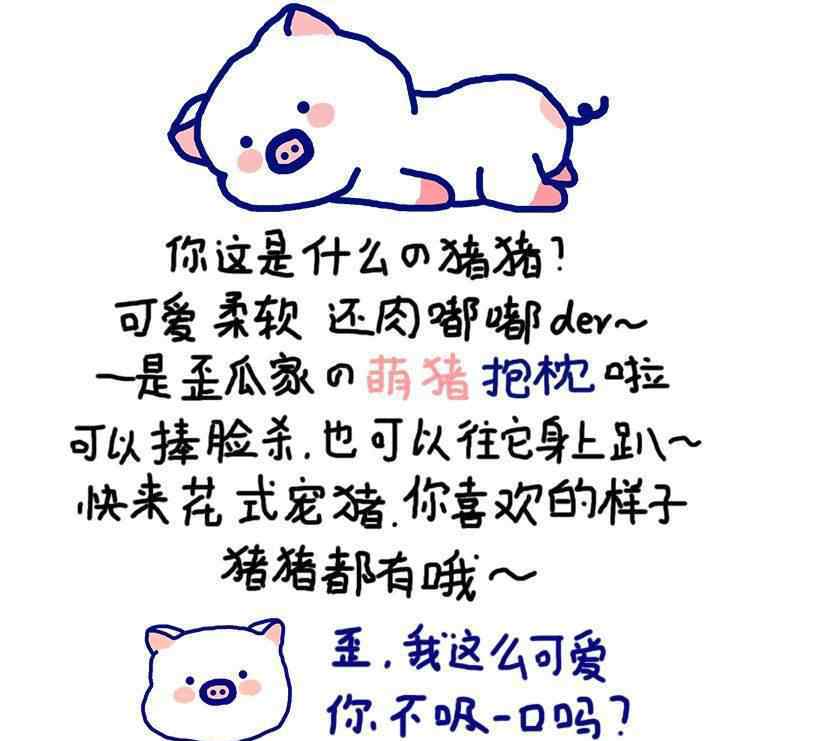 你这是什么の猪猪？
可爱 柔软 还肉嘟嘟der~
一是歪瓜家の萌猪抱枕啦
可以捧脸杀.也可以往它身上趴~
快来花式宠猪.你喜欢的样子
猪猪都有哦~
歪.我这么可爱
你.不吸一口吗?